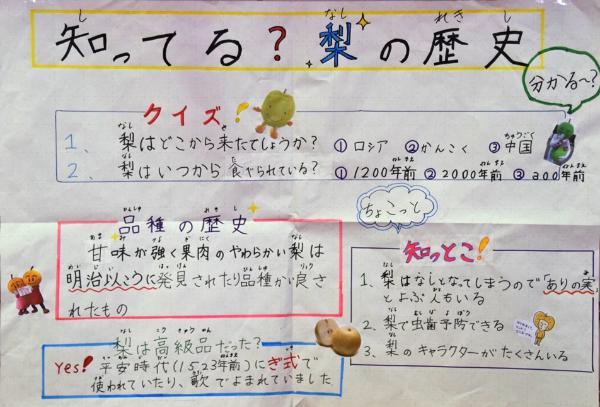 知ってる?梨の歴史
分かる〜?
クイズ!
1、梨はどこから来たでしょうか? ①ロシア ②かんこく ③中国
2、梨はいつから食べられている? ①1200年前 ②2000年前 ③300年前
ちょこっと
品種の歴史
甘味が強く果肉のやわらかい梨は
明治以こうに発見されたり品種かい良さ
れたもの
梨は高級品だった?
Yes! 平安時代(1523年前)にぎ式で
使われていたり、歌でよまれていました
知っとこ!
1、梨はなしとなってしまうので「ありの実」
とよぶ人もいる
2、梨で虫歯予防できる
3、梨のキャラクターがたくさんいる